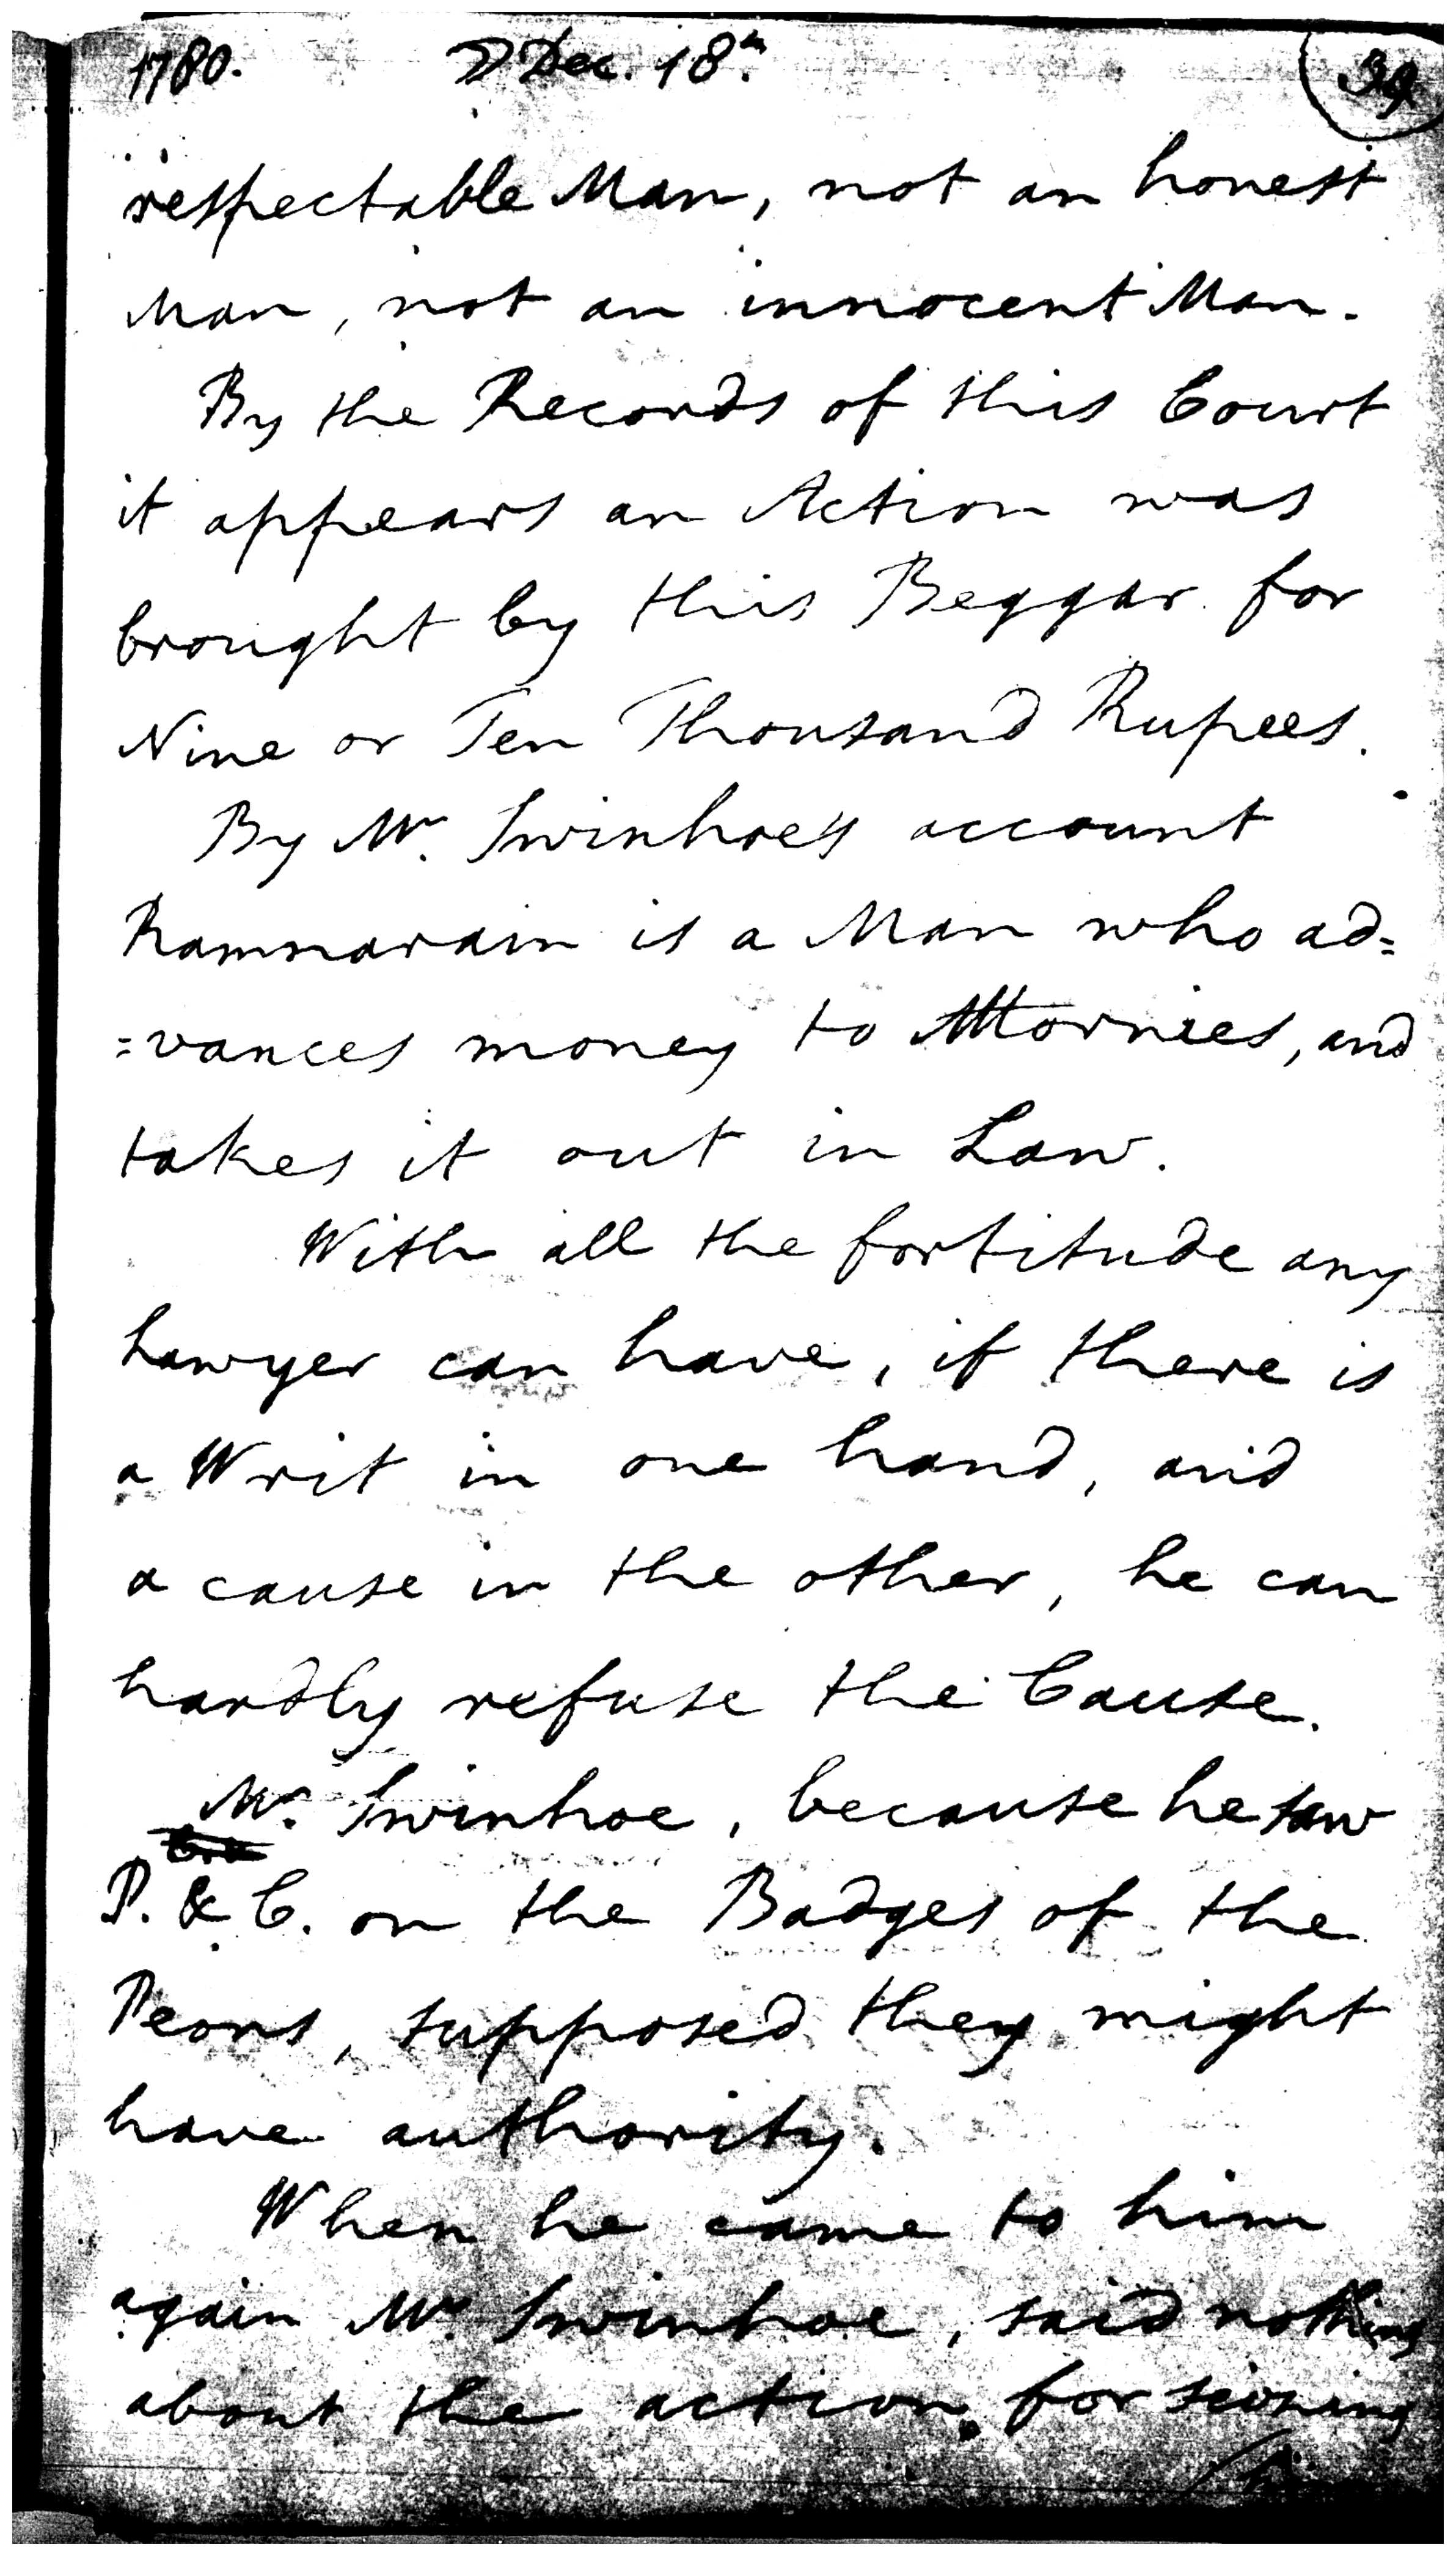 1780. ☽ Dec. 18th. 39
respectable Man, not an honest
Man, not an innocent Man.
By the Records of this Court
it appears an Action was
brought by this Beggar for
Nine or Ten Thousand Rupees.
By Mr. Swinhoe's account
Ramnarain is a Man who ad=
=vances money to Attornies, and
takes it out in Law.
With all the fortitude any
Lawyer can have, if there is
a Writ in one hand, and
a cause in the other, he can
hardly refuse the Cause.
Mr. Swinhoe, because he saw
P. & C. on the Badges of the
Peons, supposed they might
have authority.
When he came to him
again Mr. Swinhoe, said nothing
about the action for seizing